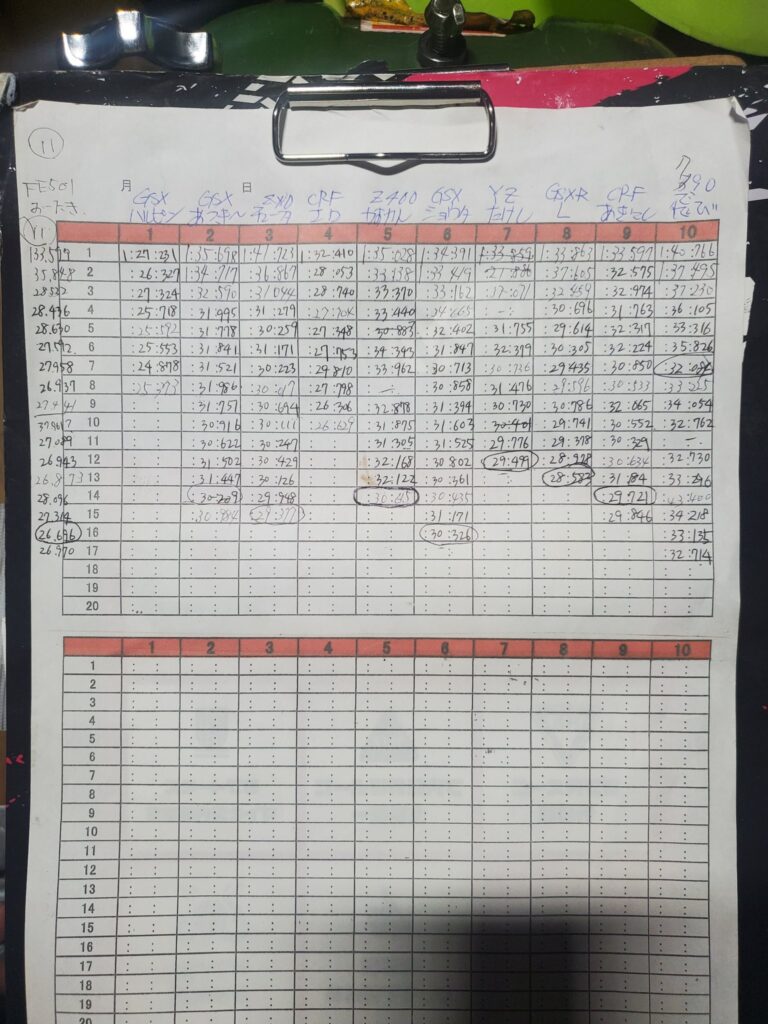 11
月 日
FE501 GSX GSX SXD CRF Z400 GSX YZ GSXR CRF 790
L
11 1 2 3 4 5 6 7 8 9 10
1 1:27:231 1:35:698 1:41:723 1:32:410 1:35:028 1:34:391 1:33:859 1:33:863 1:33:597 1:40:766
35,848 2 :26:327 :34:717 :36:867 :28:053 :33:138 :33:419 :37:605 :32:575 :37:495
28:522 3 :27:324 :32:590 :31:044 :28:740 :33:370 :33:162 :32:459 :32:974 :37:230
28,436 4 :25:718 :31:995 :31:279 :27:704 :33:440 - : :30:696 :31:763 :36:105
28,630 5 :25:592 :31:778 :30:259 :27:348 :30:883 :32:402 :31:755 :29:614 :32:317 :33:316
27,592 6 :25:553 :31:841 :31:171 :27:753 :34:343 :31:847 :32:379 :30:305 :32:224 :35:826
27958 7 :24:878 :31:521 :30:223 :29:810 :33:962 :30:713 :30:736 :29:435 :30:850 :32:084
26,937 8 :25:373 :31:986 :30:617 :27:798 - : :30:858 :31:476 :29:596 :30:533 :33:225
27,441 9 :31:757 :30:694 :26:306 :32:878 :31:394 :30:730 :30:786 :32:065 :34:054
10 :30:916 :30:111 :26:629 :31:875 :31:603 :30:401 :29:741 :30:552 :32:762
27,089 11 :30:622 :30:247 :31:305 :31:525 :29:776 :29:378 :30:329 - :
26,943 12 :31:502 :30:429 :32:168 :30:802 :29:499 :28:928 :30:634 :32:730
26,873 13 :31:447 :30:126 :32:122 :30:361 :28:583 :31:184 :33:296
28,096 14 :30:209 :29:948 :30:645 :30:435 :29:721 :43:400
27,314 15 :30:984 :29:377 :31:171 :29:846 :34:218
26,696 16 :30:326 :33:135
26,970 17 :32:714
18
19
20
1 2 3 4 5 6 7 8 9 10
1
2
3
4
5
6
7
8
9
10
11
12
13
14
15
16
17
18
19
20